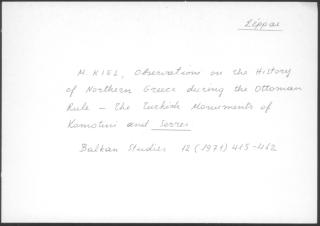 Σέρραι
M. KIEL, Observations on the History
of Northern Greece during the Ottoman
Rule – The Turkish Monuments of
Komotini and Serres
Balkan Studies 12 (1971) 415-462